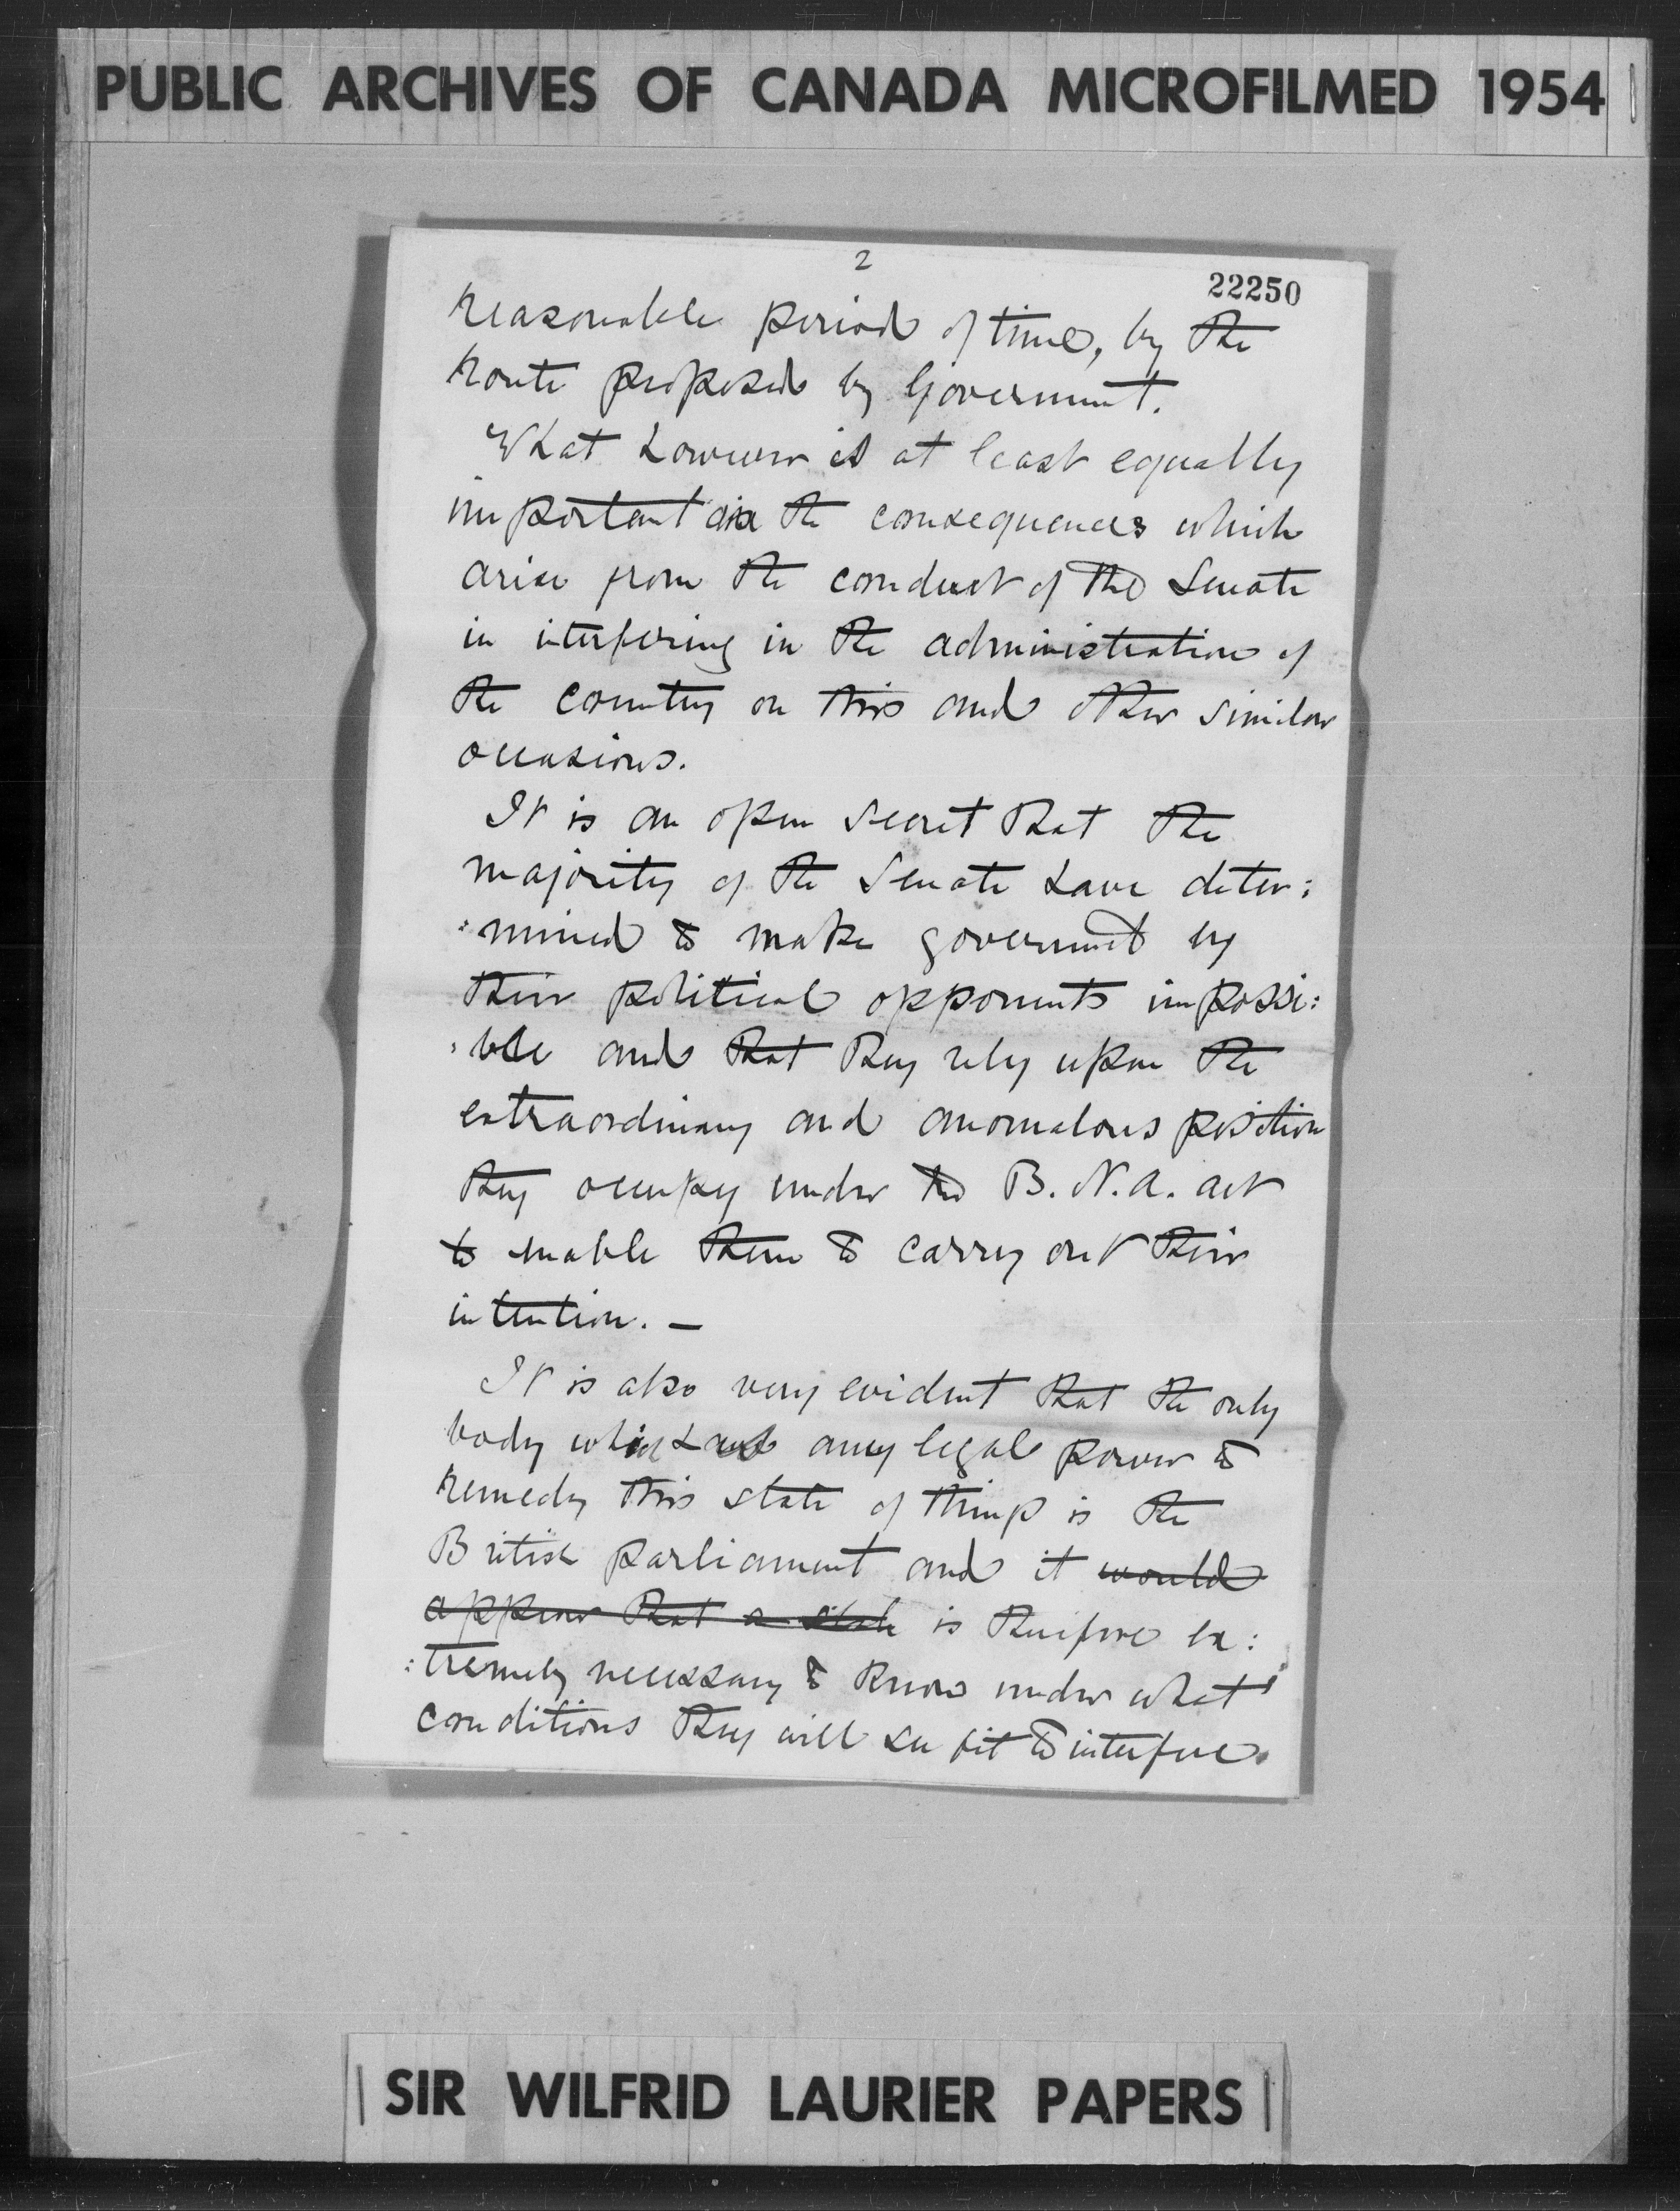 PUBLIC ARCHIVES OF CANADA MICROFILMED 1954
2
22250
reasonable period of time, by the
route proposed by Government.
What however is at least equally
important are the consequences which
arise from the conduct of the Senate
in interfering in the administration of
the country on this and other similar
occasions.
It is an open secret that the
majority of the Senate have deter:
:mined to make government by
their political opponents impossi:
:ble and that they rely upon the
extraordinary and anomalous position
they occupy under the B. N. A. act
to enable them to carry out their
intention. —
It is also very evident that the only
body which has any legal power to
remedy this state of things is the
British parliament and it would
appear that a state is therefore ex:
:tremely necessary to know under what
conditions they will see fit to interfere.
SIR WILFRID LAURIER PAPERS